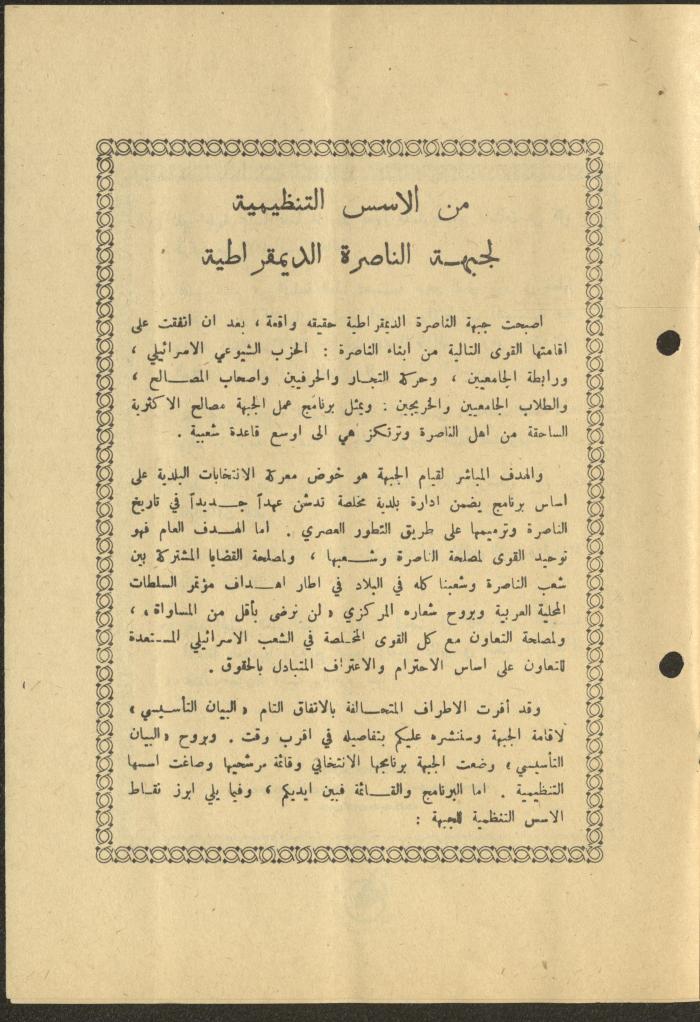 من الاسس التنظيمية
لجبهة الناصرة الديمقراطية
اصبحت جبهة الناصرة الديمقراطية حقيقه واقعة ، بعد ان اتفقت على
اقامتها القوى التالية من ابناء الناصرة : الحزب الشيوعي الاسرائيلي ،
ورابطة الجامعيين ، وحركة التجار والحرفيين واصحاب المصالح ،
والطلاب الجامعيين والخريجين . ويمثل برنامج عمل الجبهة مصالح الاكثرية
الساحقة من اهل الناصرة وترتكز هي الى اوسع قاعدة شعبية .
والهدف المباشر لقيام الجبهة هو خوض معركة الانتخابات البلدية على
اساس برنامج يضمن ادارة بلدية مخلصة تدشن عهداً جديداً في تاريخ
الناصرة وترميمها على طريق التطور العصري . اما الهدف العام فهو
توحيد القوى لمصلحة الناصرة وشعبها ، ولمصلحة القضايا المشتركة بين
شعب الناصرة وشعبنا كله في البلاد في اطار اهداف مؤتمر السلطات
المحلية العربية وبروح شعاره المركزي «لن نرضى بأقل من المساواة» ،
ولمصلحة التعاون مع كل القوى المخلصة في الشعب الاسرائيلي المستعدة
للتعاون على اساس الاحترام والاعتراف المتبادل بالحقوق .
وقد أقرت الاطراف المتحالفة بالاتفاق التام «البيان التأسيسي»
لاقامة الجبهة وسننشره عليكم بتفاصيله في اقرب وقت . وبروح «البيان
التأسيسي» وضعت الجبهة برنامجها الانتخابي وقائمة مرشحيها وصاغت اسسها
التنظيمية . اما البرنامج والقائمة فبين ايديكم ، وفيما يلي ابرز نقاط
الاسس التنظمية للجبهة :